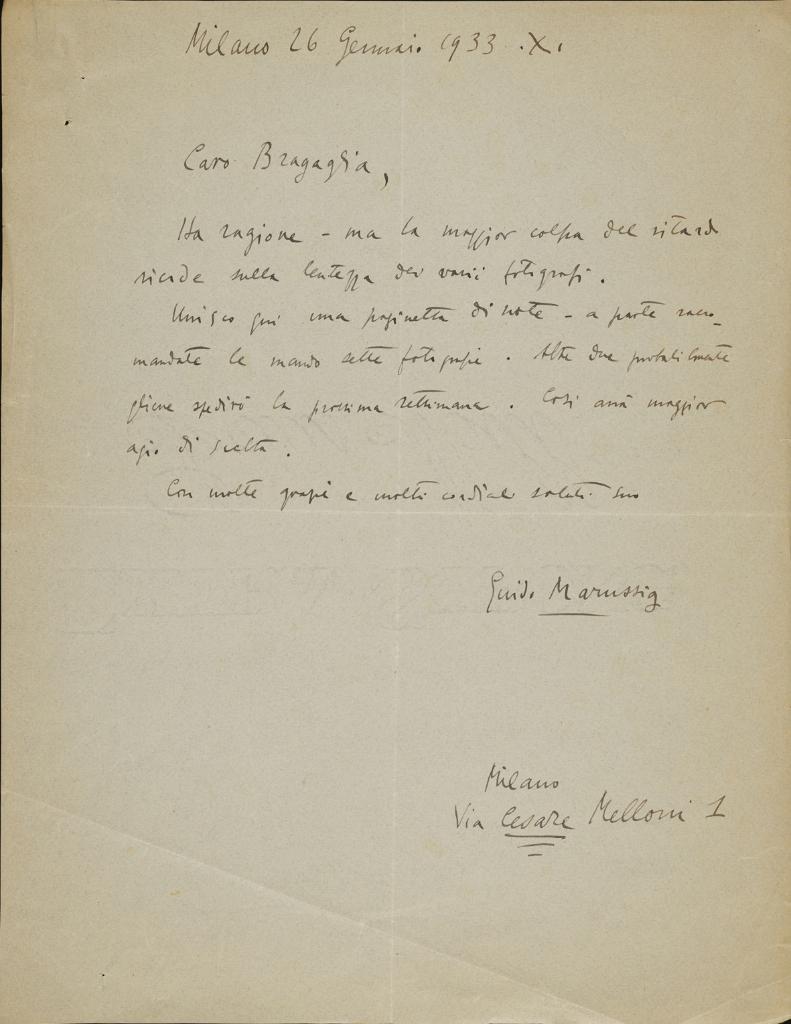 Milano 26 Gennaio 1933 .X.
Caro Bragaglia,
Ha ragione - ma la maggior colpa del ritardo
ricade sulla lentezza dei varii fotografi.
Unisco qui una paginetta di note - a parte racco-
mandate le mando sette fotografie. Altre due probabilmente
gliene spedirò la prossima settimana. Così avrà maggior
agio di scelta.
Con molte grazie e molti cordiali saluti suo
Guido Marussig
Milano
Via Cesare Melloni 1